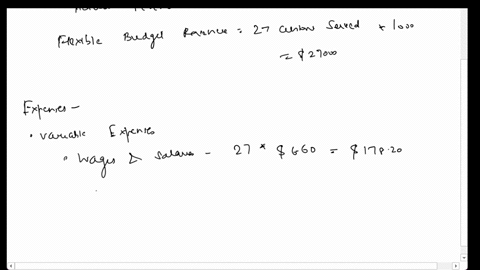 Flexible Budget Revenue = 27 Served * 1000
= $27000
Expenses -
• Variable Expenses
• Wages & Salaries - 27 * $660 = $178.20